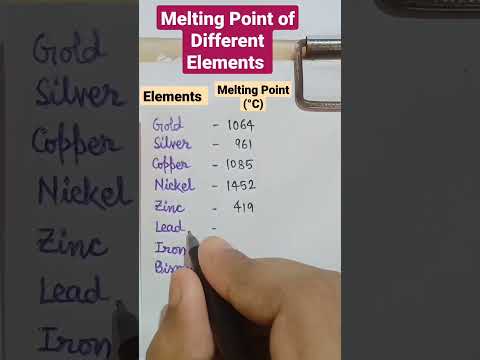 Melting Point of
Different
Elements
Elements
Melting Point
(°C)
Gold - 1064
Silver - 961
Copper - 1085
Nickel - 1452
Zinc - 419
Lead -
Iron
Gold
Silver
Copper
Nickel
Zinc
Lead
Iron